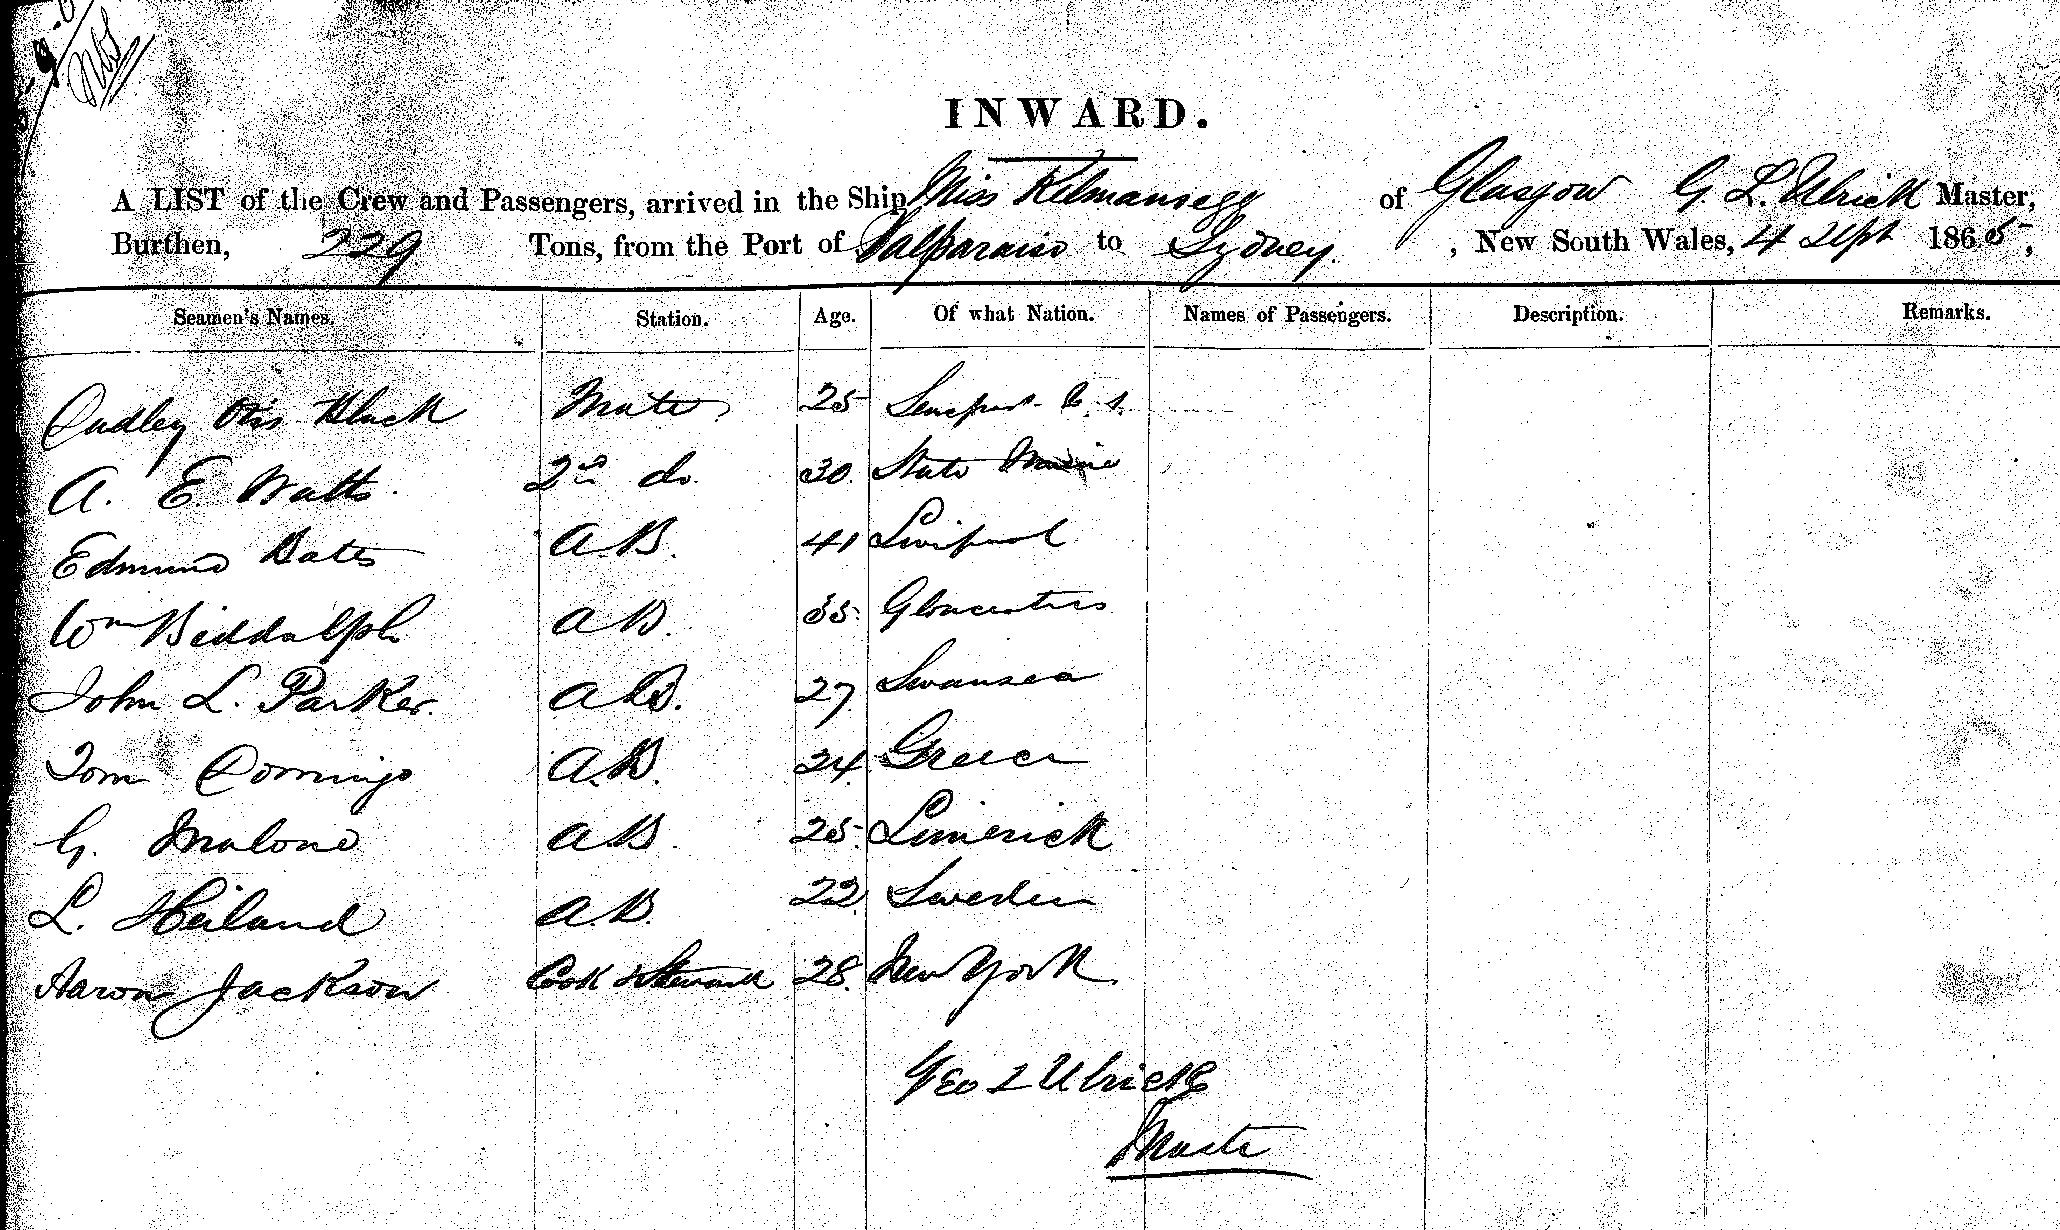 INWARD.
A LIST of the Crew and Passengers, arrived in the Ship Miss Kilmansegg of Glasgow G. L. Ulrick Master,
Burthen, 229 Tons, from the Port of Valparaiso to Sydney. , New South Wales, 4 Sept 1865,
Seamen's Names. Station. Age. Of what Nation. Names of Passengers. Description. Remarks.
Dudley Otis Black Mate 25
A. E. Watts 2nd do. 30 State Maine
Edmund Bates A.B. 41 Liverpool
Wm Biddalph A B. 35 Gloucester
John L. Parker. A B. 27 Swansea
Tom Domingo A.B. 24 Greece
G. Malone A B 25 Limerick
L. Heiland A.B. 22 Sweden
Aaron Jackson Cook & Steward 28. New York
Geo L Ulrick
Master